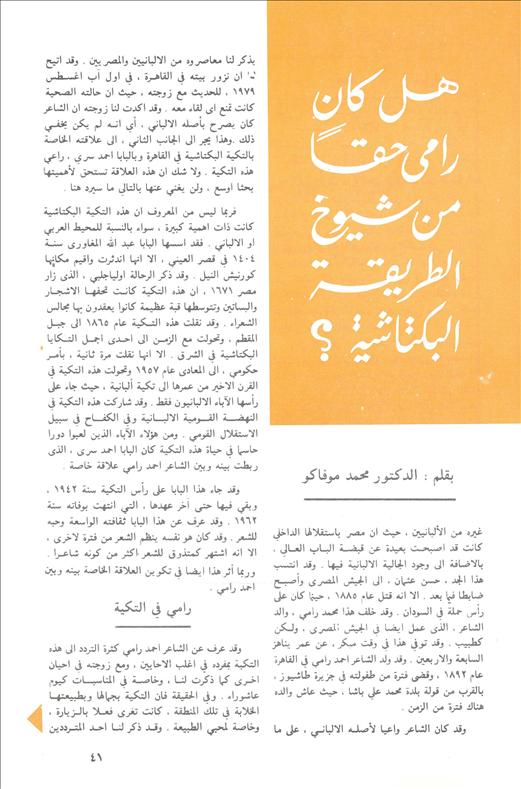 هل كان
رامي حقاً
من شيوخ
الطريقة
البكتاشية ؟
بقلم : الدكتور محمد موفاكو
غيره من الألبانيين ، حيث ان مصر باستقلالها الداخلي
كانت قد اصبحت بعيدة عن قبضة الباب العالي ،
بالاضافة الى وجود الجالية الالبانية فيها . وقد انتسب
هذا الجد ، حسن عثمان ، الى الجيش المصرى وأصبح
ضابطا فما بعد . الا انه قتل عام ١٨٨٥ ، حينما كان على
رأس حملة في السودان . وقد خلف هذا محمد رامي ، والد
الشاعر ، الذى عمل ايضا في الجيش المصرى ، ولكن
كطبيب . وقد توفي هذا في وقت مبكر ، عن عمر يناهز
السابعة والاربعين . وقد ولد الشاعر احمد رامي في القاهرة
عام ١٨٩٢ ، وقضى فترة من طفولته في جزيرة طاشيوز ،
بالقرب من قولة بلدة محمد علي باشا ، حيث عاش والده
هناك فترة من الزمن .
وقد كان الشاعر واعيا لأصله الالباني ، على ما
يذكر لنا معاصروه من الالبانيين والمصريين . وقد اتيح
ان نزور بيته في القاهرة ، في اول آب اغسطس
١٩٧٩ ، للحديث مع زوجته ، حيث ان حالته الصحية
كانت تمنع اى لقاء معه . وقد اكدت لنا زوجته ان الشاعر
كان يصرح بأصله الالباني ، أي انه لم يكن يخفي
ذلك . وهذا يجر الى الجانب الثاني ، الى علاقته الخاصة
بالتكية البكتاشية في القاهرة وبالبابا احمد سري ، راعي
هذه التكية . ولا شك ان هذه العلاقة تستحق لأهميتها
بحثا اوسع ، ولن يغني عنها بالتالي ما سيرد هنا .
فربما ليس من المعروف ان هذه التكية البكتاشية
كانت ذات اهمية كبيرة ، سواء بالنسبة للمحيط العربي
او الالباني . فقد اسسها البابا عبد الله المغاورى سنة
١٤٠٤ في قصر العيني ، الا انها اندثرت واقيم مكانها
كورنيش النيل . وقد ذكر الرحالة اولياجلبي ، الذى زار
مصر ١٦٧١ ، ان هذه التكية كانت تحفها الاشجار
والبساتين وتتوسطها قبة عظيمة كانوا يعقدون بها مجالس
الشعراء . وقد نقلت هذه التكية عام ١٨٦٥ الى جبل
المقطم ، وتحولت مع الزمن الى احدى اجمل التكايا
البكتاشية في الشرق . الا انها نقلت مرة ثانية ، بأمر
حكومي ، الى المعادى عام ١٩٥٧ وتحولت هذه التكية في
القرن الاخير من عمرها الى تكية ألبانية ، حيث جاء على
رأسها الآباء الالبانيون فقط . وقد شاركت هذه التكية في
النهضة القومية الالبانية وفي الكفاح في سبيل
الاستقلال القومي . ومن هؤلاء الآباء الذين لعبوا دورا
حاسما في حياة هذه التكية كان البابا احمد سرى ، الذى
ربطت بينه وبين الشاعر احمد رامي علاقة خاصة .
وقد جاء هذا البابا على رأس التكية سنة ١٩٤٢ ،
وبقي فيها حتى آخر عهدها ، التي انتهت بوفاته سنة
١٩٦٢ . وقد عرف عن هذا البابا ثقافته الواسعة وحبه
للشعر . وقد كان هو نفسه ينظم الشعر من فترة لاخرى ،
الا انه اشتهر كمتذوق للشعر اكثر من كونه شاعرا .
وربما أثر هذا ايضا في تكوين العلاقة الخاصة بينه وبين
احمد رامي .
رامي في التكية
وقد عرف عن الشاعر احمد رامي كثرة التردد الى هذه
التكية بمفرده في اغلب الاحايين ، ومع زوجته في احيان
اخرى كما ذكرت لنا ، وخاصة في المناسبات كيوم
عاشوراء . وفي الحقيقة فان التكية بجمالها وبطبيعتها
الخلابة في تلك المنطقة ، كانت تغرى فعلا بالزيارة ،
وخاصة لمحبي الطبيعة . وقد ذكر لنا احد المترددين
٤١